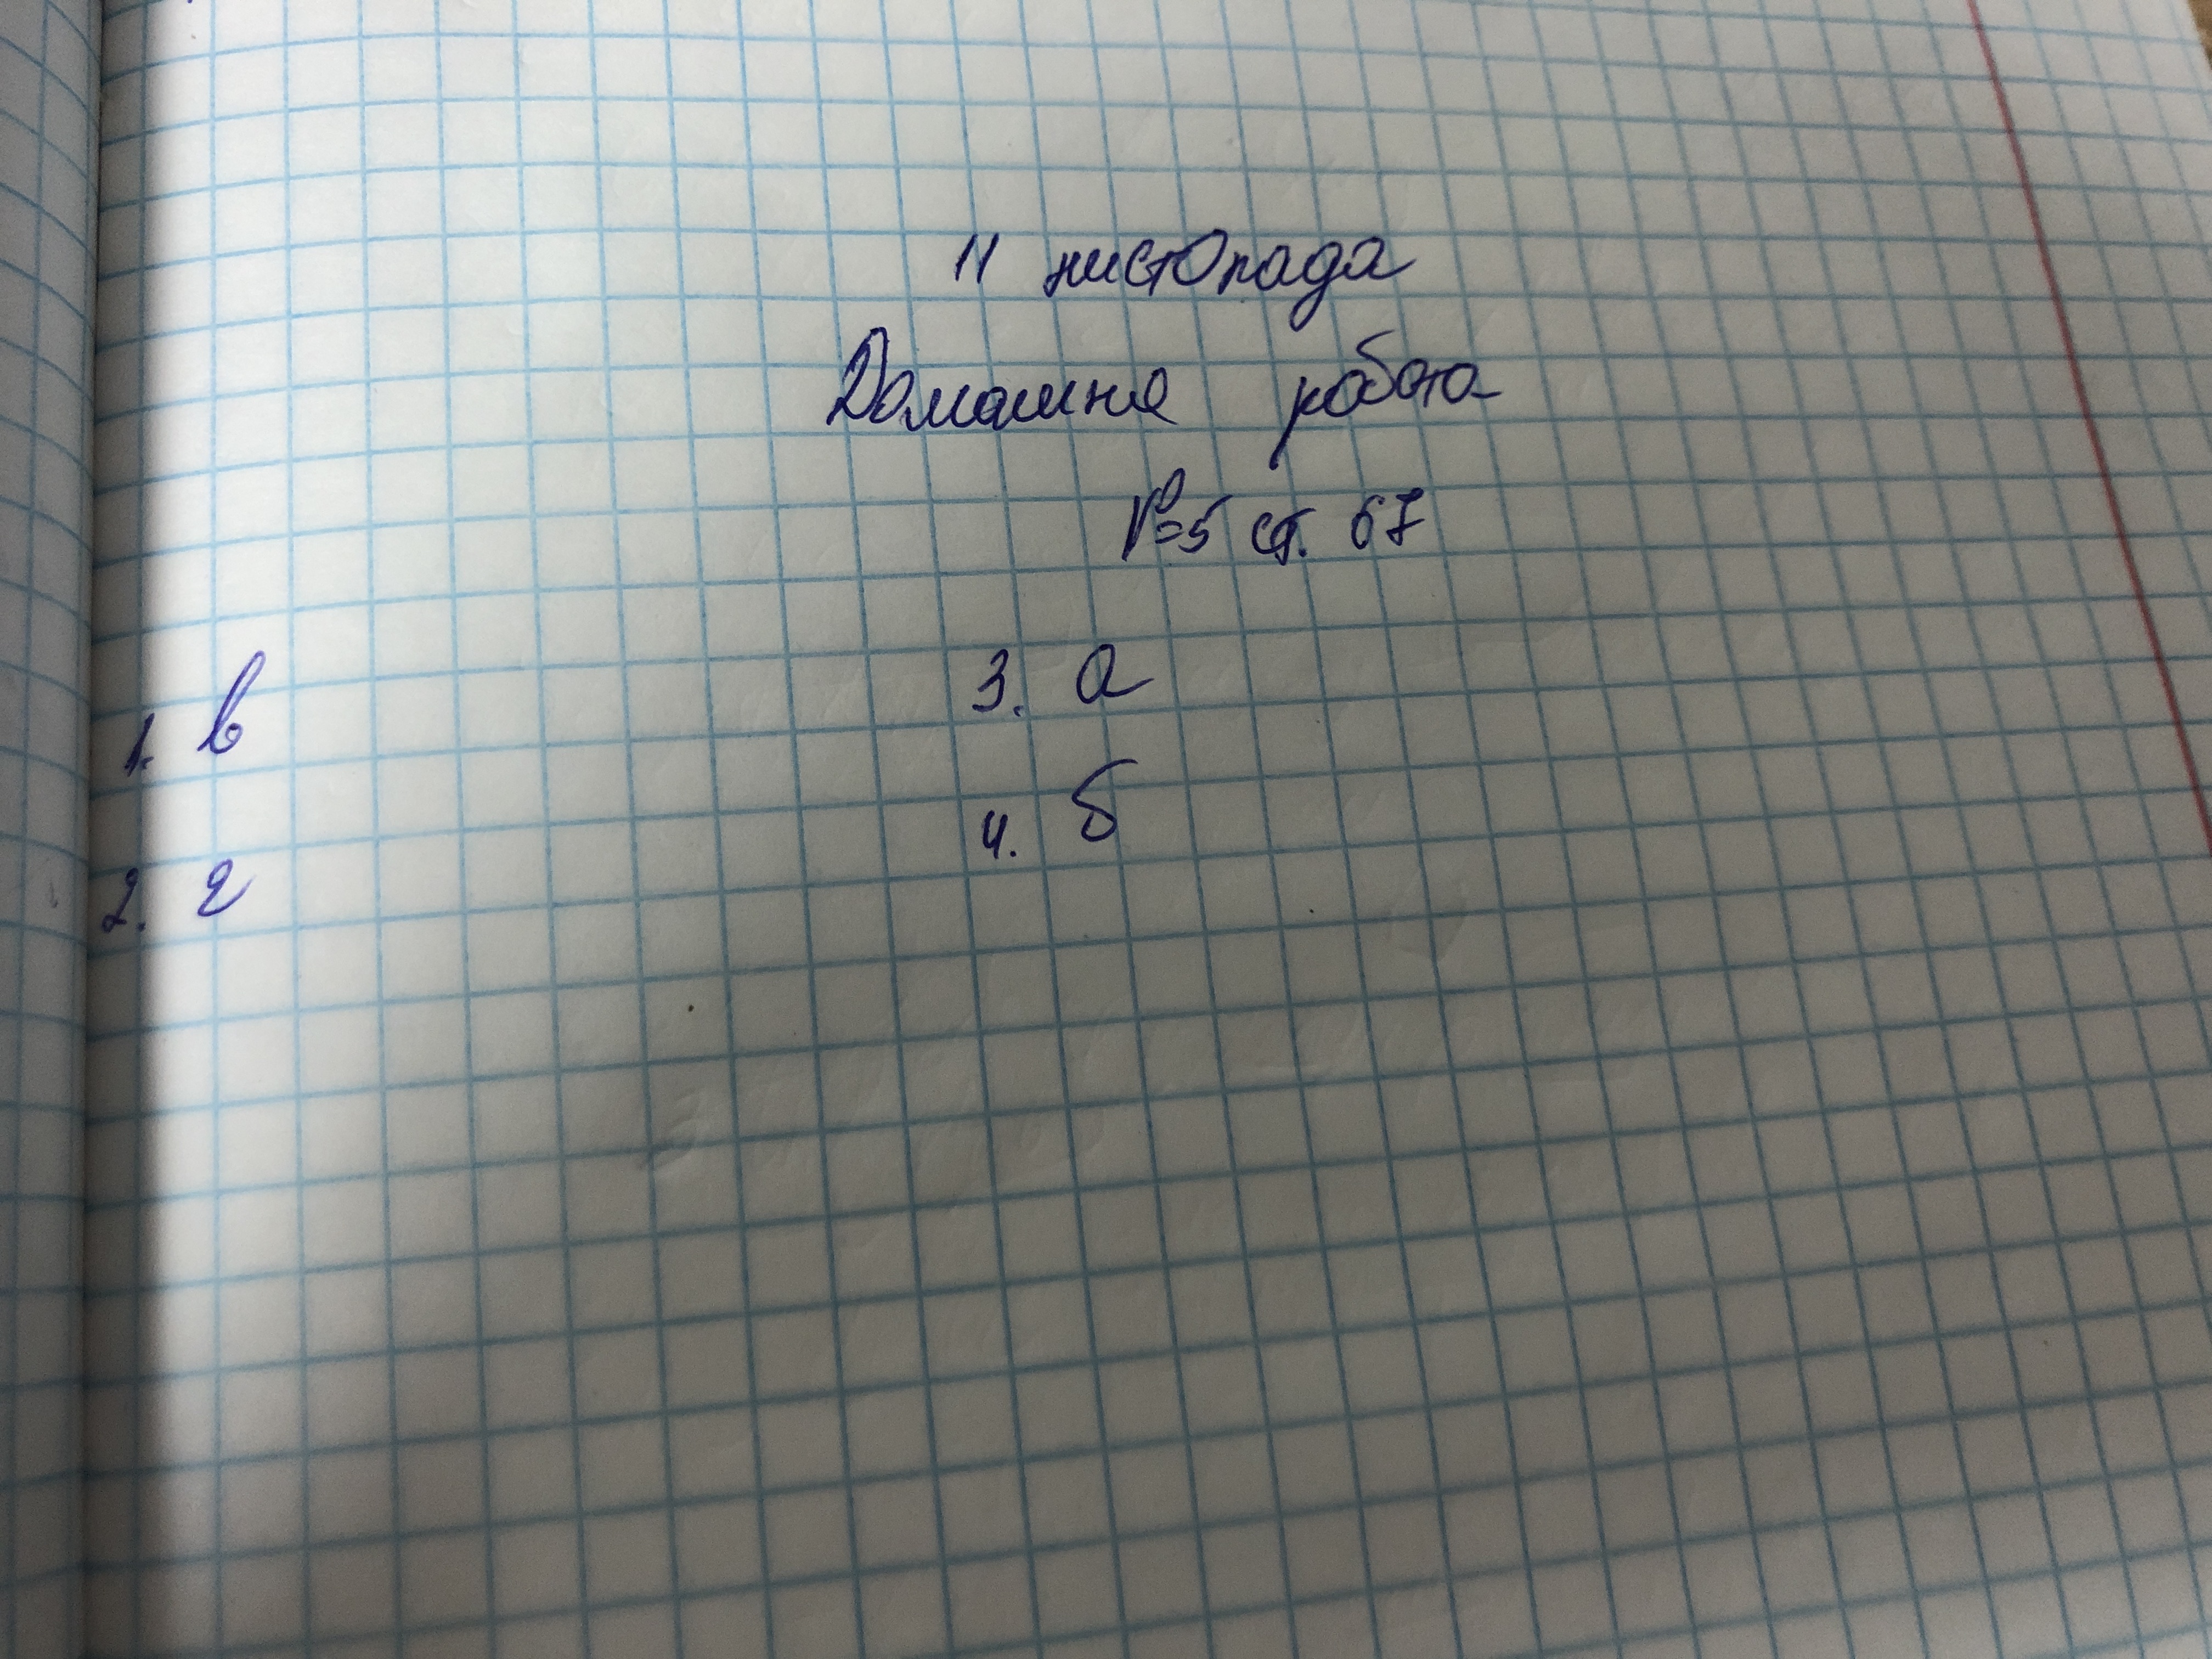 11 листопада
Домашня робота
№5 ст. 67
1. в
2. г
3. а
4. б